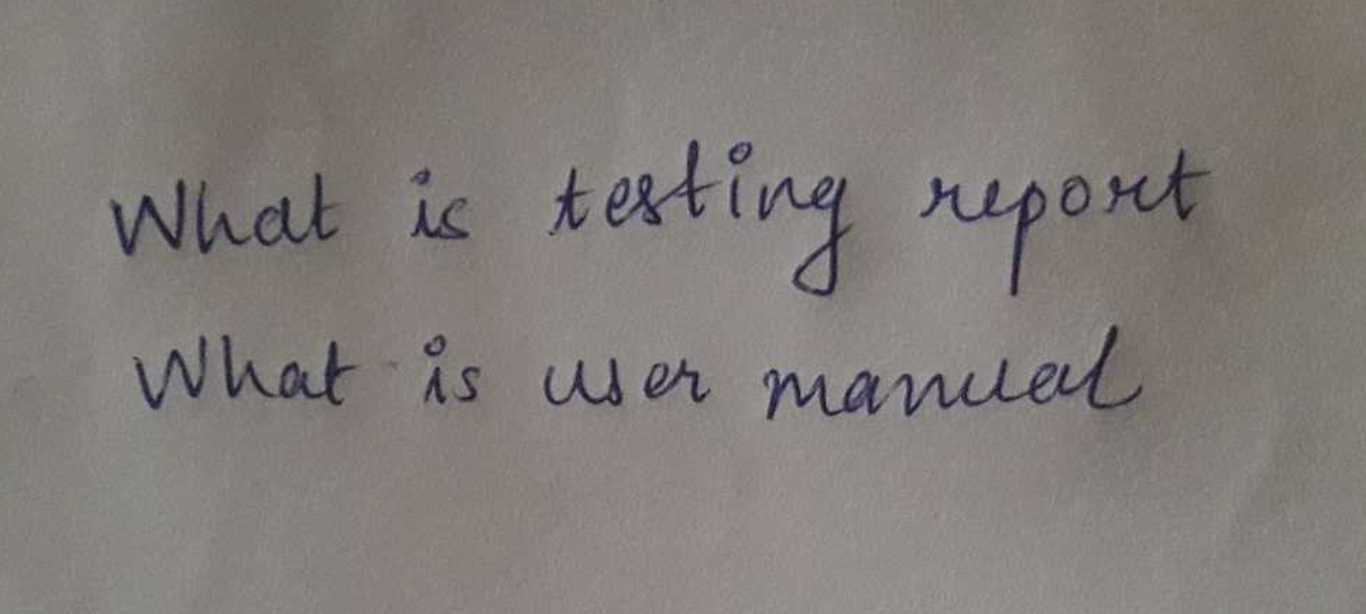 What is testing report
What is user manual